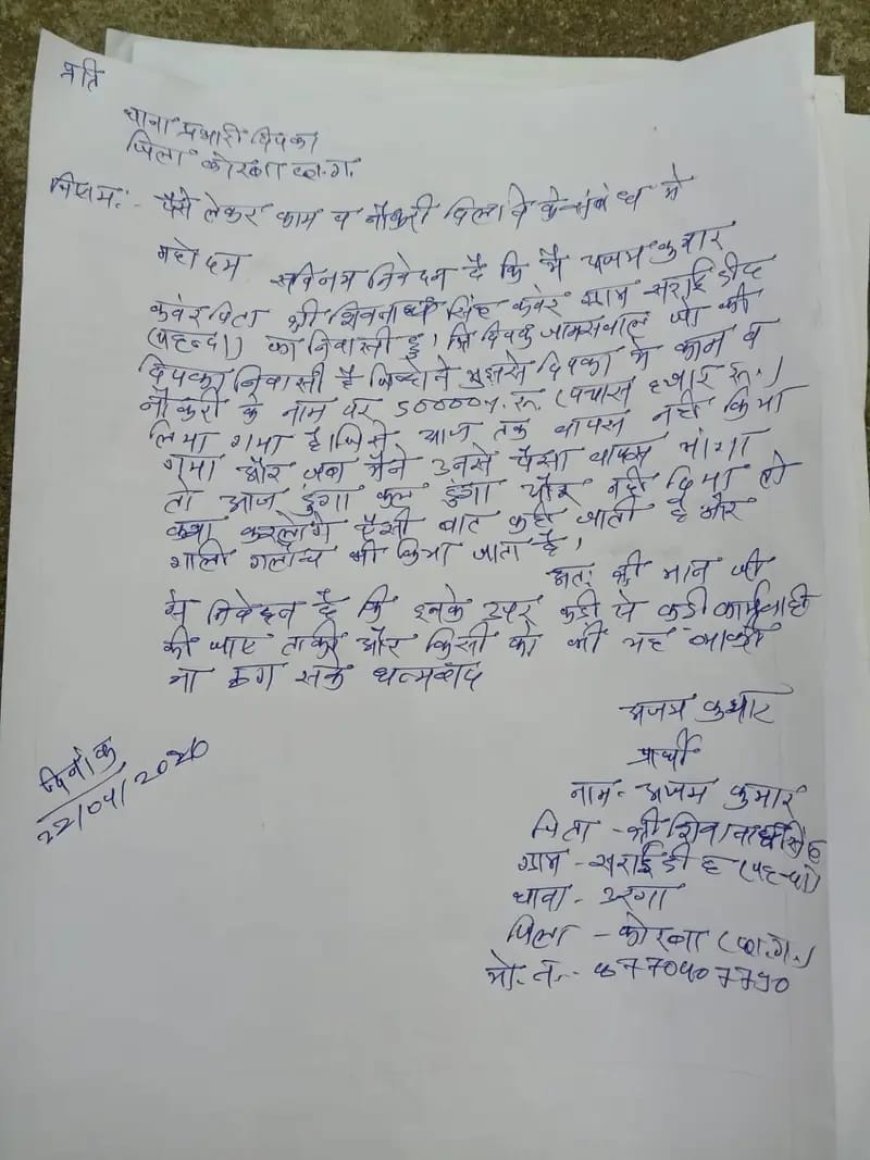 प्रति
थाना प्रभारी दिपका
जिला कोरबा छ.ग.
विषय:- पैसे लेकर काम व नौकरी दिलाने के संबंध में
महोदय सविनय निवेदन है कि मैं अजय कुमार
कवंर पिता श्री शिवनाथ सिंह कवंर ग्राम सराईडीह
(पहन्दा) का निवासी हु। कि दिपक जायसवाल जो की
दिपका निवासी है जिन्होने मुझसे दिपका में काम व
नौकरी के नाम पर 50000न. रू. (पचास हजार रू.)
लिया गया है। जिसे आज तक वापस नही किया
गया और जब मैने उनसे पैसा वापस मांगा
तो आज दुंगा कल दुंगा और नही दिया तो
क्या करलोगे ऐसी बात कही जाती है और
गाली गलोच भी किया जाता है।
अत: श्री मान जी
से निवेदन है कि इनके उपर कडी से कडी कार्यवाही
की जाए ताकी और किसी को भी यह व्यक्ती
ना ठग सके धन्यवाद
अजय कुमार
प्रार्थी
दिनांक
22/04/2026
नाम - अजय कुमार
पिता - श्री शिवनाथ सिंह
ग्राम - सराईडीह (पहन्दा)
थाना - उरगा
जिला - कोरबा (छ.ग.)
मो. नं. -